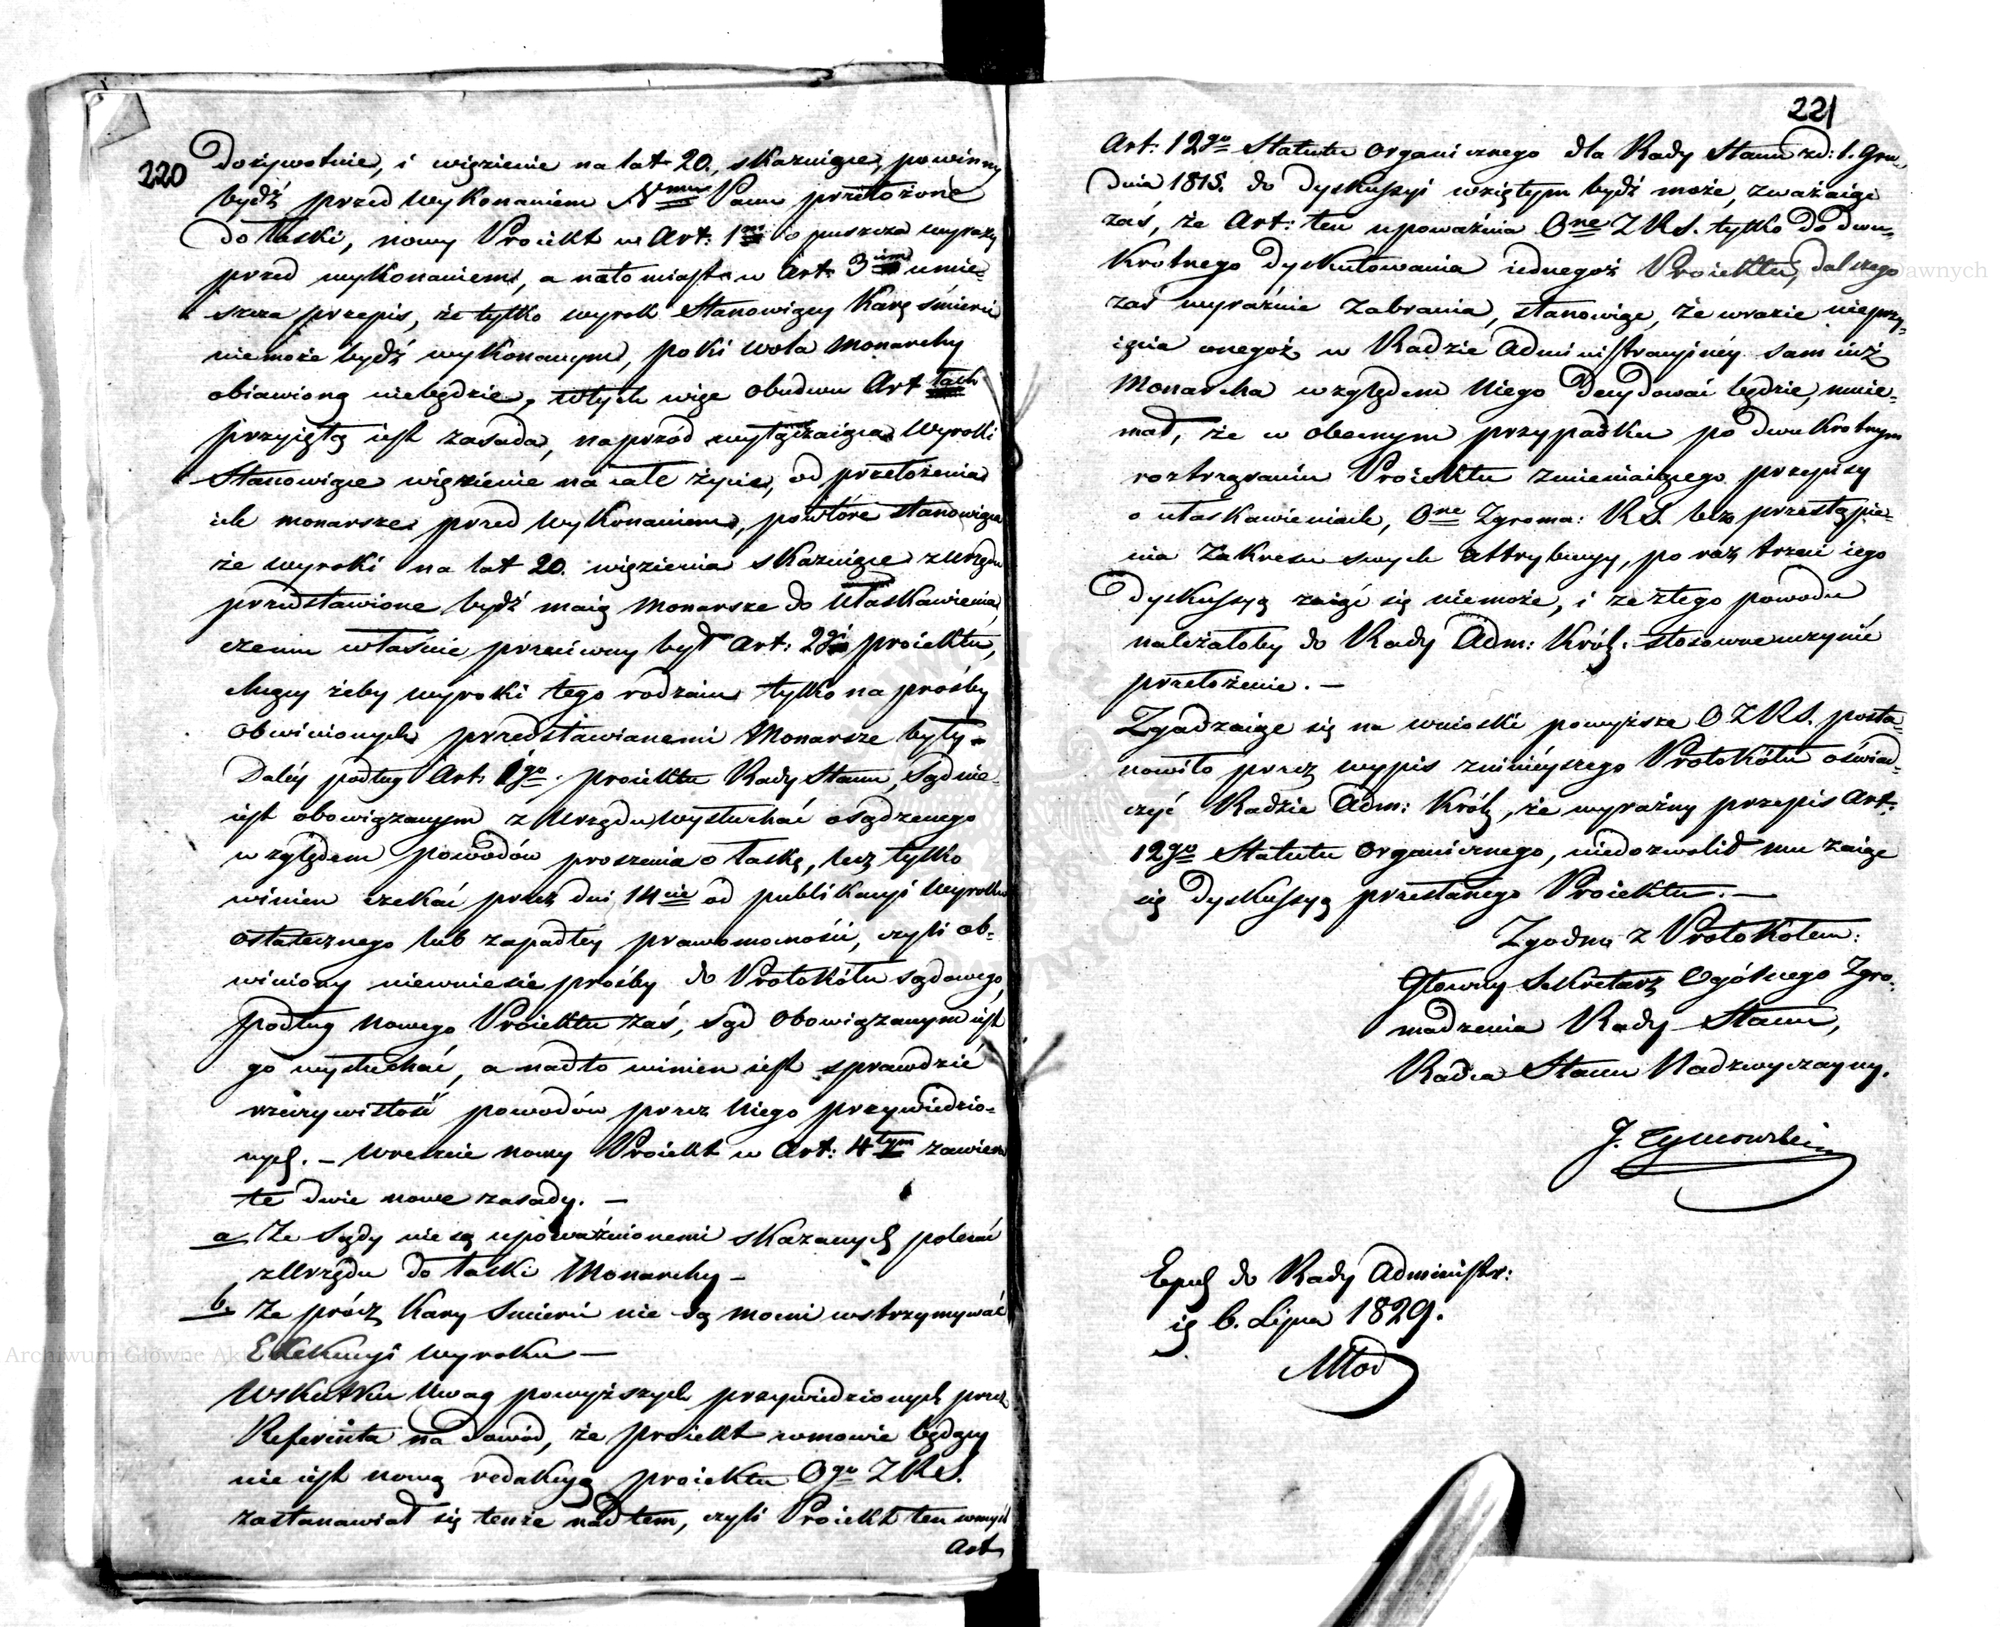 220
dożywotnie, i więzienie na lat 20, skazuiące, powinny
bydź przed wykonaniem Nmu Panu przełożone
do łaski, nowy Proiekt w Art: 1m opuszcza wyrazy
przed wykonaniem, a natomiast w Art. 3im umie-
szcza przepis, że tylko wyrok stanowiący karę śmierci
niemoże bydź wykonanym, poki wola Monarchy
obiawioną niebędzie, w tych więc obudwu Art tach
przyiętą iest zasada, naprzód wyłączaiąca wyroki
stanowiące więzienie na całe życie, od przełożenia
ich monarsze przed wykonaniem, powtóre stanowiąca
że wyroki na lat 20. więzienia skazuiące z urzędu
przedstawione bydź maią Monarsze do ułaskawienia,
czemu właśnie przeciwny był Art: 2gi proiektu,
chcący żeby wyroki tego rodzaiu tylko na prośby
obwinionych przedstawianemi Monarsze były.
Daléy podług Art: 1go proiektu Rady Stanu, Sąd nie-
iest obowiązanym z Urzędu wysłuchać osądzonego
względem powodów proszenia o łaskę, lecz tylko
winien czekać przez dni 14cie od publikacyi wyroku
ostatecznego lub zapadłéy prawomocności, czyli ob-
winiony niewniesie prośby do Protokółu sądowego,
podług nowego Proiektu zaś, sąd obowiązanym iest
go wysłuchać, a nadto winien iest sprawdzić
rzeczywistość powodów przez niego przywiedzio-
nych. – Wreszcie nowy Proiekt w Art: 4tym zawiera
te dwie nowe zasady. –
a Że Sądy nie są upoważnionemi skazanych polecać
z Urzędu do łaski Monarchy –
b. Że prócz Kary Smierci nie są mocni wstrzymywać
Exekucyi wyroku –
Wskutku Uwag powyższych przywiedzionych przez
Referenta na dowód, że proiekt w mowie będący
nie iest nową redakcyą proiektu Ogo ZRS.
zastanawiał się tenże nad tem, czyli Proiekt ten w myśl
Art
221
Art: 12go Statutu organicznego dla Rady Stanu zd: 1. Gru-
dnia 1815. do dyskussyi wziętym bydź może, zważaiąc
zaś, że Art: ten upoważnia One ZRS. tylko do dwu-
krotnego dyskutowania iednegoż Proiektu, dalszego
zaś wyraźnie zabrania, stanowiąc, że wrazie nieprzy-
ięcia onegoż w Radzie Administracyinéy sam iuż
Monarcha względem niego decydować będzie, mnie-
mał, że w obecnym przypadku po dwukrotnym
roztrząsaniu Proiektu zmieniaiącego przepisy
o ułaskawieniach, One Zgroma: RS. bez przestąpie-
nia zakresu swych attrybucyy, po raz trzeci iego
dyskussyą zaiąć się niemoże, i ze złego powodu
należałoby do Rady Adm: Król. stosowne uczynić
przełożenie. –
Zgadzaiąc się na wnioski powyższe OZRS. posta-
nowiło przez wypis z niniéyszego Protokółu oświad-
czyć Radzie Adm: Król, że wyraźny przepis Art:
12go Statutu organicznego, niedozwolił mu zaiąć
się dyskussyą przesłanego Proiektu. –
Zgodno z Protokołem:
Głowny Sekretarz Ogólnego Zgro-
madzenia Rady Stanu,
Radca Stanu Nadzwyczayny.
J. Tymowski
do Rady Administr:
6. Lipca 1829.
Młod
Archiwum Główne Akt Dawnych